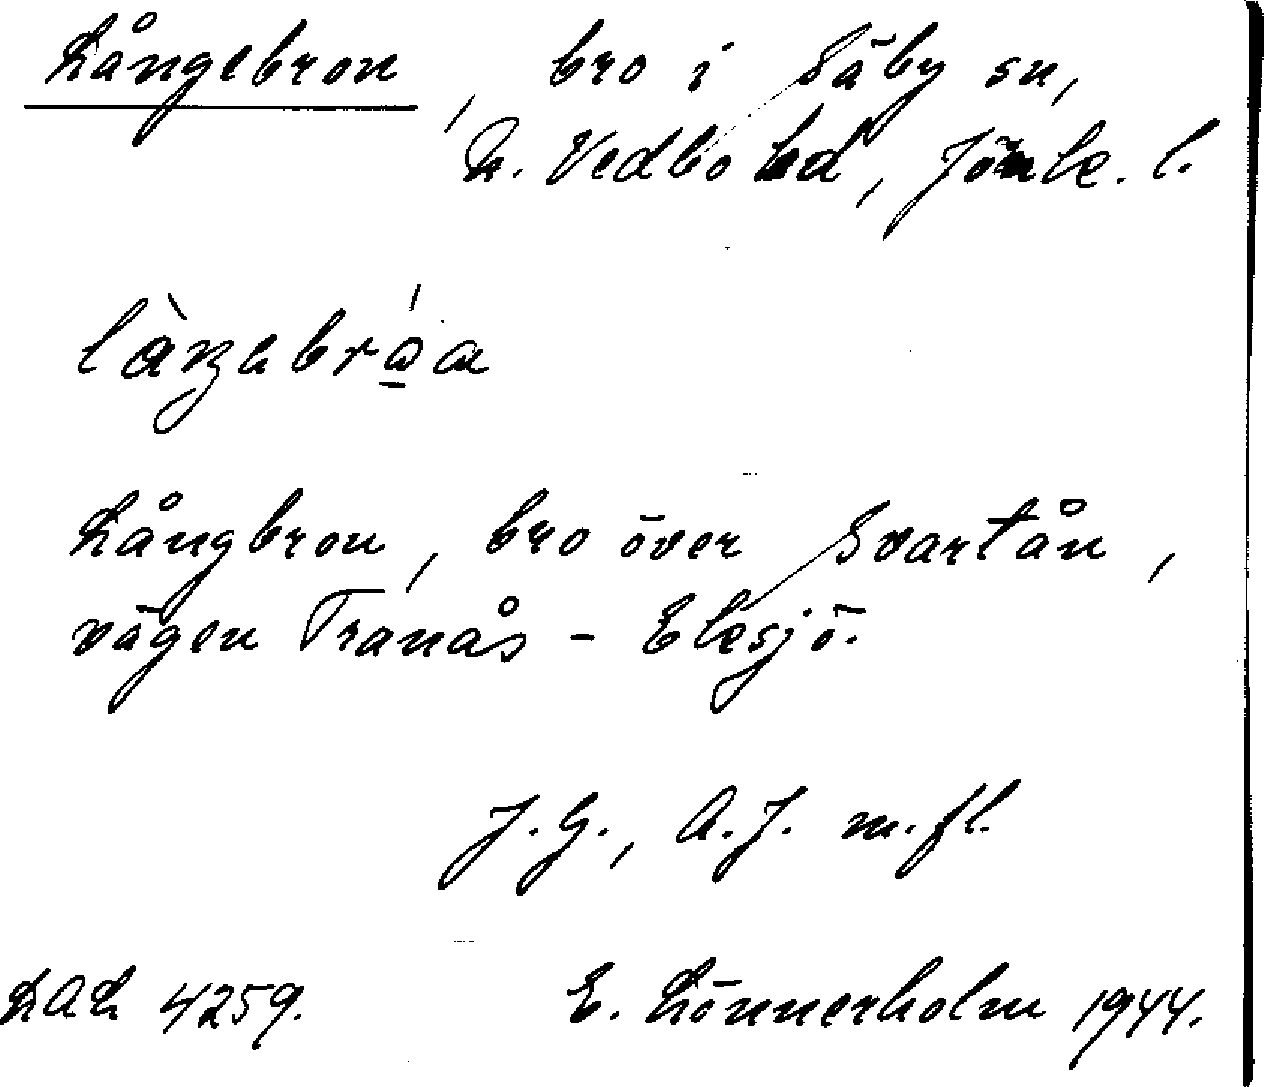 Långebron, bro i Säby sn,
N. Vedbo hd, Jönk. l.
Långbron, bro över Svartån,
vägen Tranås - Eksjö.
J. G., A. J. m. fl.
LAL 4259. E. Lönnerholm 1944.